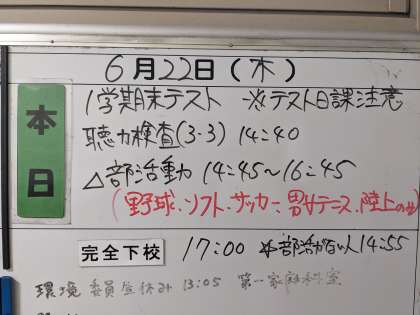 6月22日(木)
本日
1学期末テスト ※テスト日課注意
聴力検査(3-3) 14:40
△部活動 14:45~16:45
(野球、ソフト、サッカー、男女テニス、陸上のみ)
完全下校 17:00 ※部活がない人14:55
環境委員昼休み 13:05 第一家庭科室